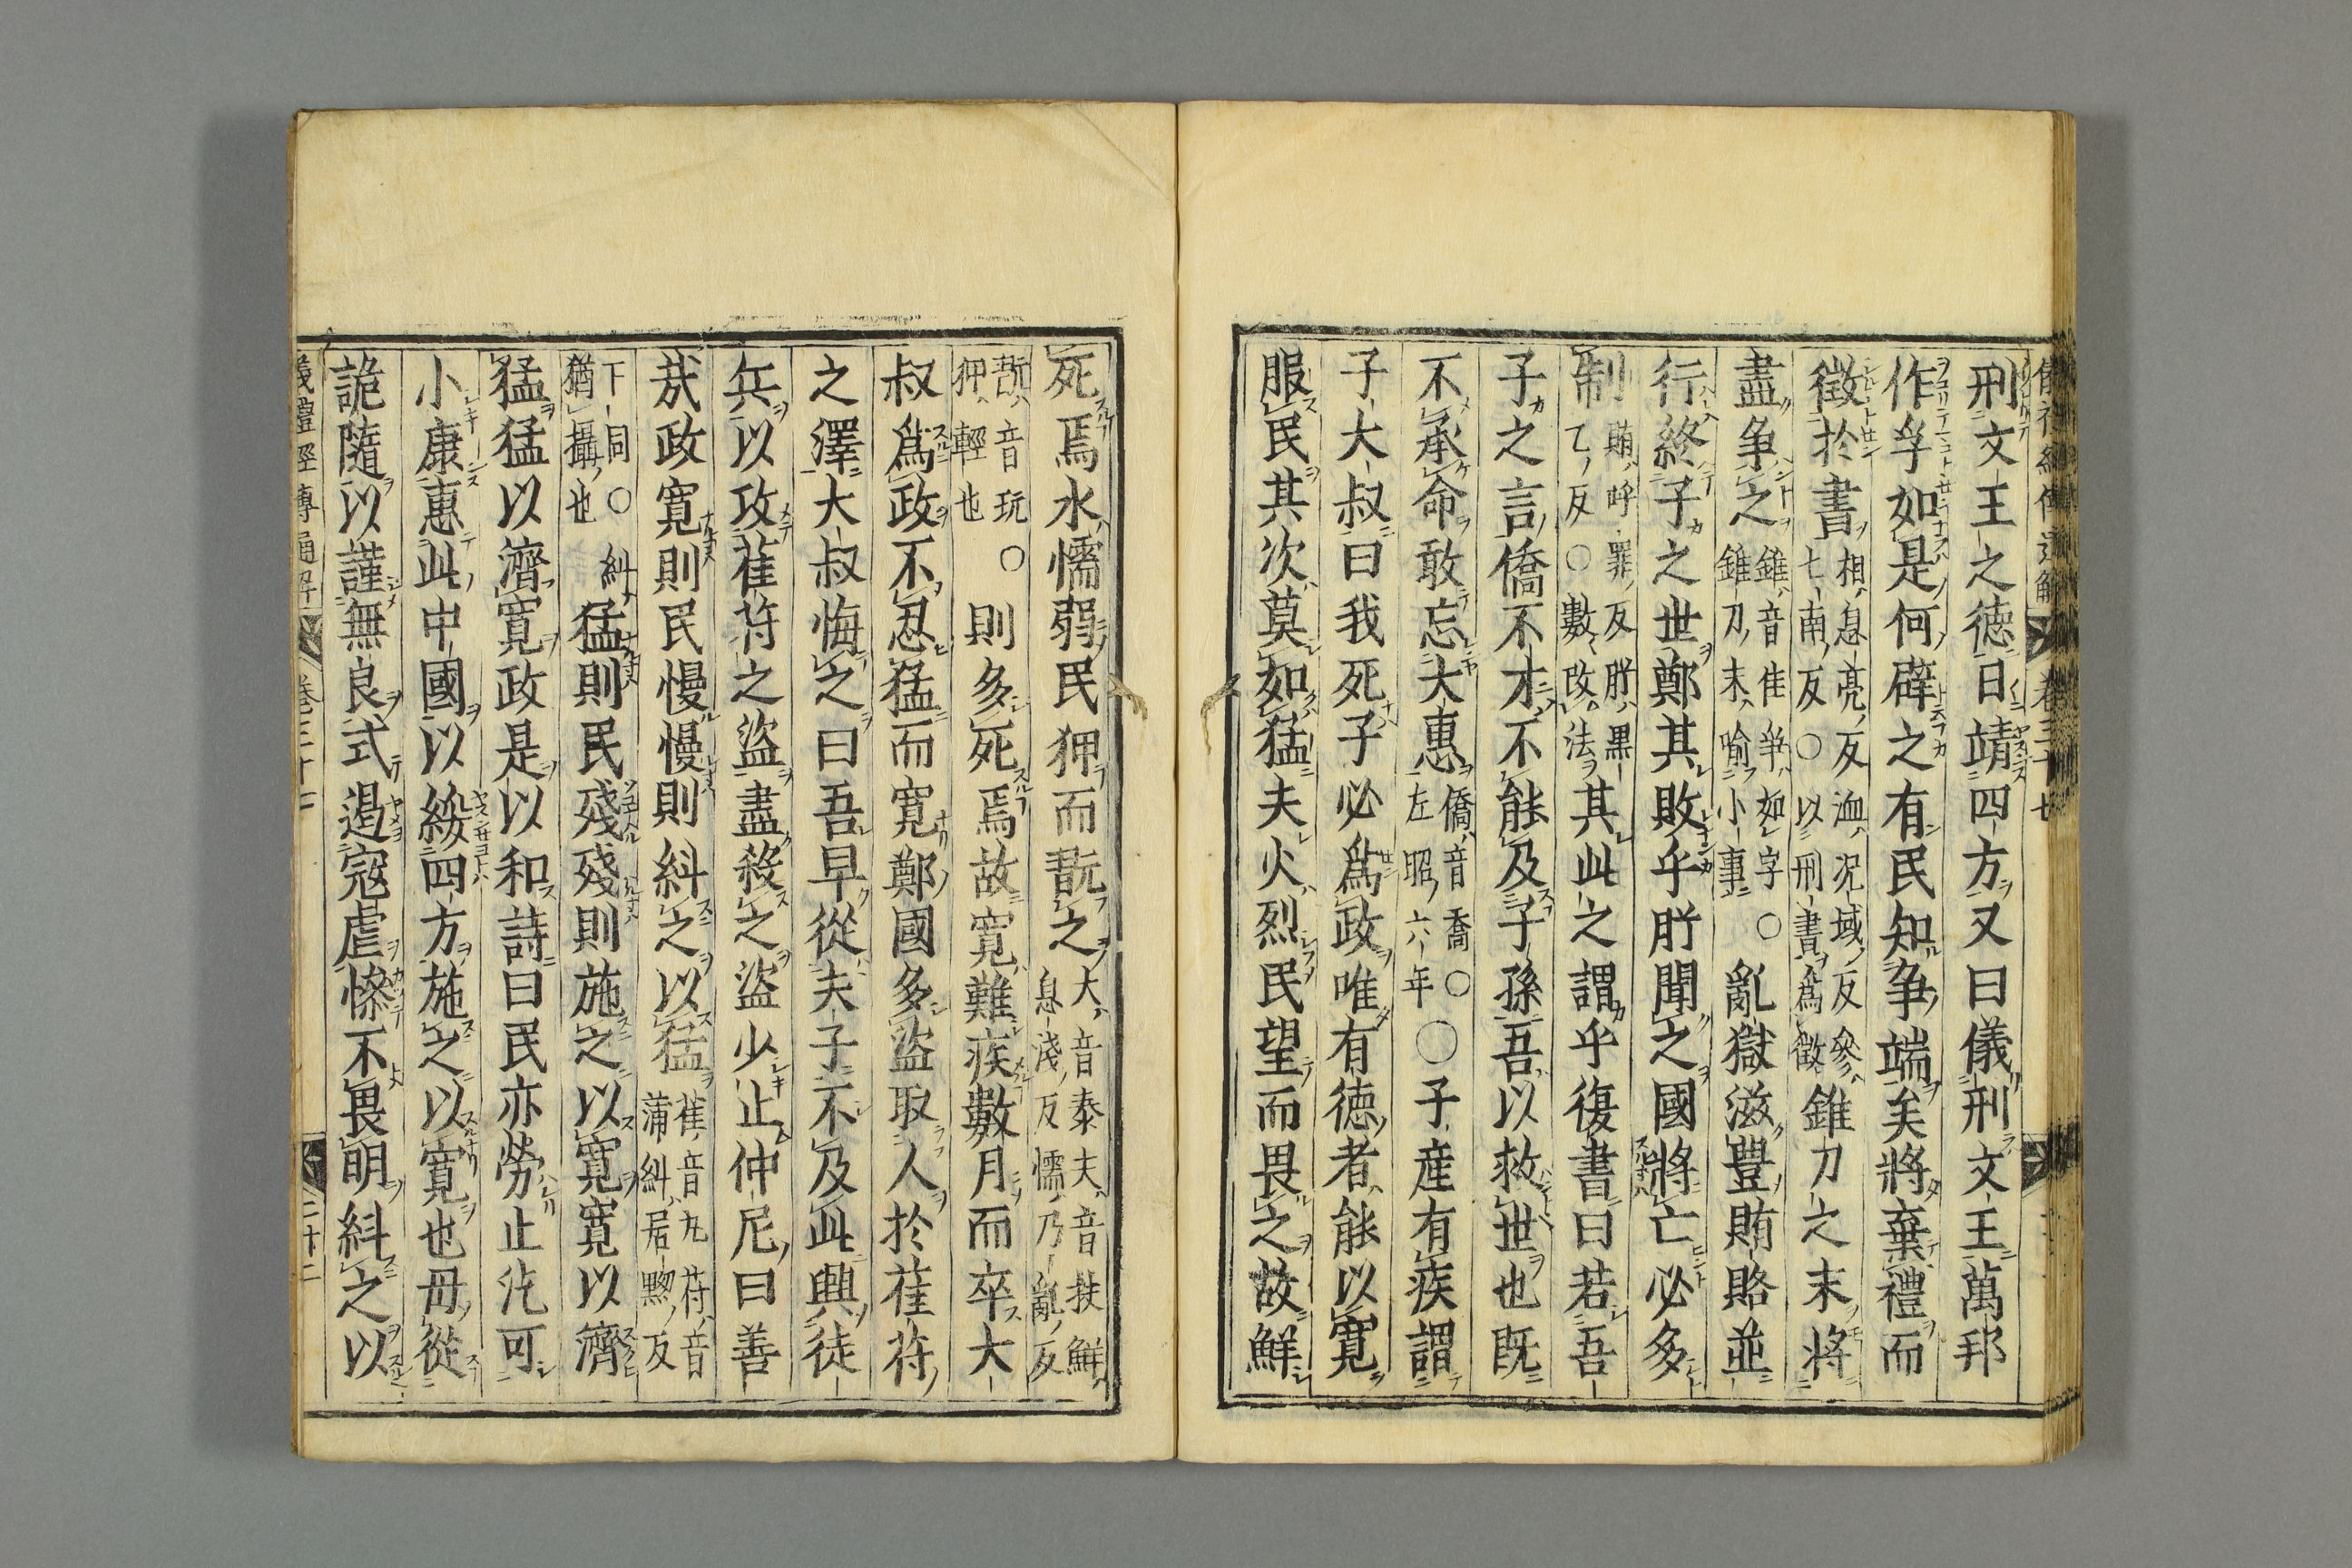 刑文王之徳日靖四方又曰儀刑文王萬邦
作孚如是何辟之有民知爭端矣將棄禮而
徵於書相息亮反洫况域反參七南反○以刑書爲徵錐刀之末將
盡爭之錐音隹爭如字○錐刀末喻小事亂獄滋豐賄賂並
行終子之世鄭其敗乎肸聞之國將亡必多
制賄呼罪反肸黑乙反○數改法其此之謂乎復書曰若吾
子之言僑不才不能及子孫吾以救世也既
不承命敢忘大惠僑音喬○左昭六年○子産有疾謂
子大叔曰我死子必爲政唯有徳者能以寬
服民其次莫如猛夫火烈民望而畏之故鮮
死焉水懦弱民狎而翫之大音泰夫音扶鮮息淺反懦乃亂反
翫音玩○狎輕也則多死焉故寬難疾數月而卒大
叔爲政不忍猛而寛鄭國多盜取人於萑苻
之澤大叔悔之曰吾早從夫子不及此興徒
兵以攻萑苻之盜盡殺之盜少止仲尼曰善
㢤政寛則民慢慢則糾之以猛萑音丸苻音蒲糾居黝反
下同○糾猶攝也猛則民殘殘則施之以寛寛以濟
猛猛以濟寛政是以和詩曰民亦勞止汔可
小康惠此中國以綏四方施之以寛也毋從
詭隨以謹無良式遏寇虐慘不畏明糾之以
儀禮經傳通解 卷三十七 二十二